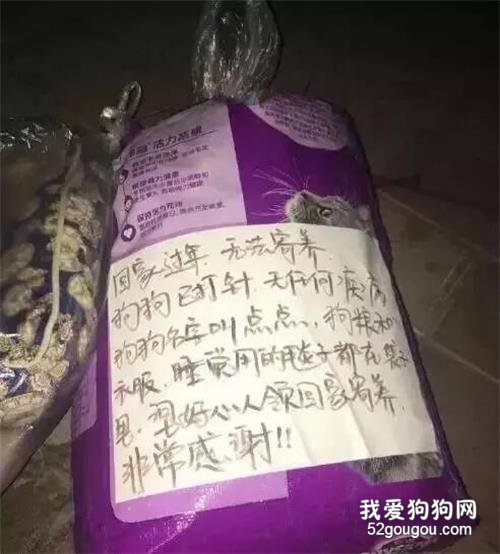 活力亮眼
保持活力充沛
回家过年,无法寄养
狗狗已打针,无任何疾病
狗狗名字叫点点,狗粮和
衣服,睡觉用的毯子都在袋子
里,望好心人领回家寄养.
非常感谢!!
我爱狗狗网
52gougou.com